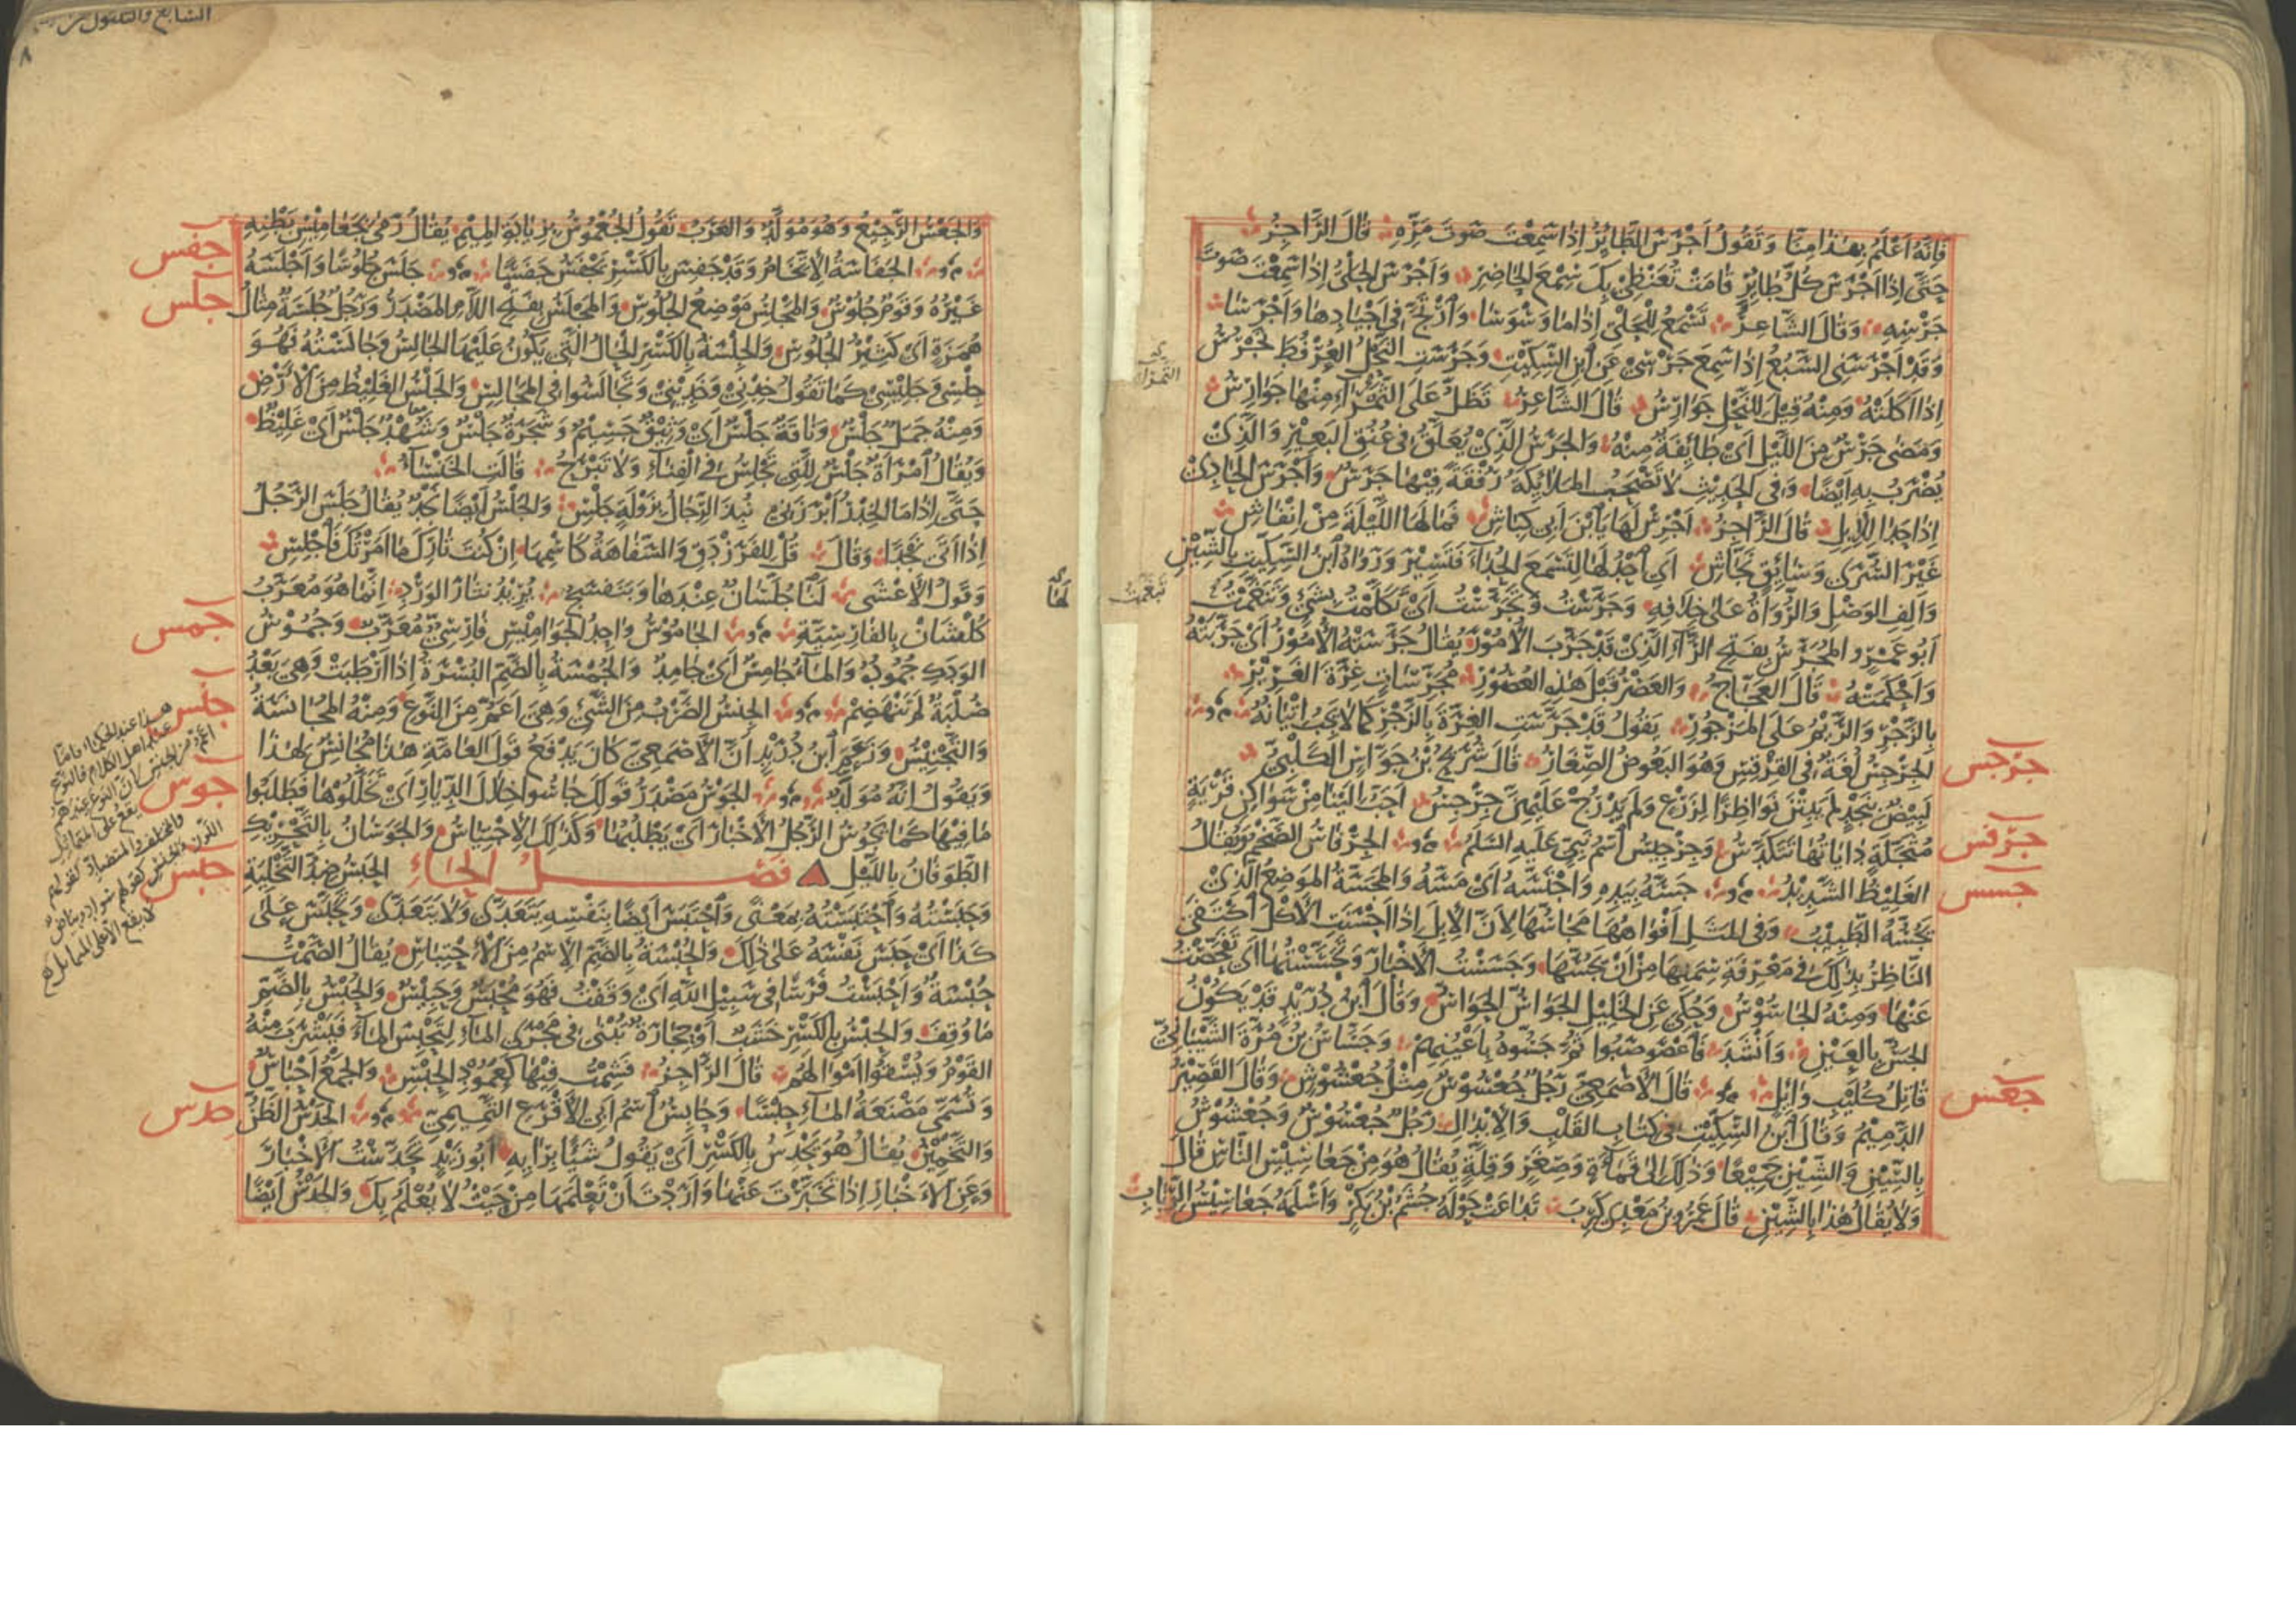 فَإِنَّهُ أَعْلَمُ بِهٰذَا مِنَّا وَتَقُولُ أَجْرَسَ الطَّائِرُ إِذَا سَمِعْتَ صَوْتَ مَرِّهِ قَالَ الرَّاجِزُ
حَتَّى إِذَا أَجْرَسَ كُلُّ طَائِرِ قَامَتْ تُعَنْظِي بِكَ سِمْعَ الحَاضِرِ وَأَجْرَسَ الحَلْيُ إِذَا سَمِعْتَ صَوْتَ
جَرْسِهِ وَقَالَ الشَّاعِرُ تَسْمَعُ لِلْحَلْيِ إِذَا مَا وَسْوَسَا وَارْتَجَّ فِي أَجْيَادِهَا وَأَجْرَسَا
وَقَدْ أَجْرَسَنِي السَّبُعُ إِذَا سَمِعَ جَرْسِي عَنِ ابْنِ السِّكِّيْتِ وَجَرَسَتِ النَّحْلُ العُرْفُطَ تَجْرُسُ
إِذَا أَكَلَتْهُ وَمِنْهُ قِيلَ لِلنَّحْلِ جَوَارِسُ قَالَ الشَّاعِرُ تَظَلُّ عَلَى الثَّمْرَاءِ مِنْهَا جَوَارِسُ
وَمَضَى جَرْسٌ مِنَ اللَّيْلِ أَيْ طَائِفَةٌ مِنْهُ وَالجَرَسُ الَّذِيْ يُعَلَّقُ فِي عُنُقِ البَعِيْرِ وَالَّذِيْ
يُضْرَبُ بِهِ أَيْضًا وَفِي الحَدِيْثِ لَا تَصْحَبُ المَلَائِكَةُ رُفْقَةً فِيْهَا جَرَسٌ وَأَجْرَسَ الحَادِيْ
إِذَا حَدَا لِلْإِبِلِ قَالَ الرَّاجِزُ أَجْرِسْ لَهَا يَا ابْنَ أَبِي كِبَاشِ فَمَا لَهَا اللَّيْلَةَ مِنْ إِنْفَاشِ
غَيْرَ السُّرَى وَسَائِقٍ نَجَّاشِ أَيِ احْدُ لَهَا لِتَسْمَعَ الحُدَاءَ فَتَسِيْرَ وَرَوَاهُ ابْنُ السِّكِّيْتِ بِالشِّيْنِ
وَأَلِفِ الوَصْلِ وَالرُّوَاةُ عَلَى خِلَافِهِ وَجَرَسْتُ وَتَجَرَّسْتُ أَيْ تَكَلَّمْتُ بِشَيْءٍ وَتَنَغَّمْتُ
أَبُو عَمْرٍو المُجَرَّسُ بِفَتْحِ الرَّاءِ الَّذِيْ قَدْ جَرَّبَ الأُمُورَ يُقَالُ جَرَّسَتْهُ الأُمُوْرُ أَيْ جَرَّبَتْهُ
وَأَحْكَمَتْهُ قَالَ العَجَّاجُ وَالعَصْرَ قَبْلَ هٰذِهِ العُصُوْرِ مُجَرِّسَاتٍ غِرَّةَ الغَرِيْرِ
بِالزَّجْرِ وَالرَّيْمُ عَلَى المَزْجُورِ يَقُولُ قَدْ جَرَّسَتِ الغِرَّةَ بِالزَّجْرِ كَمَا لَا يَجِبُ إِتْيَانُهُ
جرجس الجِرْجِسُ لُغَةٌ فِي القِرْقِسِ وَهُوَ البَعُوضُ الصِّغَارُ قَالَ شُرَيْحُ بْنُ جَوَّاسٍ الكَلْبِيُّ
لَبِيْضٌ بِنَجْدٍ لَمْ يَبِتْنَ نَوَاطِرًا لِزَرْعٍ وَلَمْ يَدْرُجْ عَلَيْهِنَّ جِرْجِسُ أَحَبُّ إِلَيْنَا مِنْ سَوَاكِنِ قَرْيَةٍ
جرفس مُثَجَّلَةٍ دَايَاتُهَا تَتَكَدَّسُ وَجِرْجِيسُ اسْمُ نَبِيٍّ عَلَيْهِ السَّلَمُ الجِرْفَاسُ الضَّخْمُ وَيُقَالُ
جسس الغَلِيظُ الشَّدِيْدُ جَسَّهُ بِيَدِهِ وَاجْتَسَّهُ أَيْ مَسَّهُ وَالمَجَسَّةُ المَوْضِعُ الَّذِيْ
يَجُسُّهُ الطَّبِيْبُ وَفِي المَثَلِ أَفْوَاهُهَا مَجَاسُّهَا لِأَنَّ الإِبِلَ إِذَا أَحْسَنَتِ الأَكْلَ اكْتَفَى
النَّاظِرُ بِذَلِكَ فِي مَعْرِفَةِ سِمَنِهَا مِنْ أَنْ يَجُسَّهَا وَجَسَسْتُ الأَخْبَارَ وَتَجَسَّسْتُهَا أَيْ تَفَحَّصْتُ
عَنْهَا وَمِنْهُ الجَاسُوْسُ وَحُكِيَ عَنِ الخَلِيْلِ الجَوَاسُّ الحَوَاسُّ وَقَالَ ابْنُ دُرَيْدٍ قَدْ يَكُوْنُ
الجَسُّ بِالعَيْنِ وَأَنْشَدَ فَاعْصَوْصَبُوا ثُمَّ جَسُّوهُ بِأَعْيُنِهِمْ وَجَسَّاسُ بْنُ مُرَّةَ الشَّيْبَانِيُّ
جعس قَاتِلُ كُلَيْبِ وَائِلٍ قَالَ الأَصْمَعِيُّ رَجُلٌ جُعْسُوْسٌ مِثْلُ جُعْشُوْشٍ وَقَالَ القَصِيْرُ
الدَّمِيْمُ وَقَالَ ابْنُ السِّكِّيْتِ فِي كِتَابِ القَلْبِ وَالإِبْدَالِ رَجُلٌ جُعْسُوْسٌ وَجُعْشُوْشٌ
بِالسِّيْنِ وَالشِّيْنِ جَمِيْعًا وَذٰلِكَ إِلَى قَمَأَةٍ وَصِغَرٍ وَقِلَّةٍ يُقَالُ هُوَ مِنْ جَعَاسِيْسِ النَّاسِ قَالَ
وَلَا يُقَالُ هٰذَا بِالشِّيْنِ قَالَ عَمْرُو بْنُ مَعْدِي كَرِبَ تَدَاعَتْ حَوْلَهُ جُشَمُ بْنُ بَكْرٍ وَأَسْلَمَهُ جَعَاسِيْسُ الرِّبَابِ
وَالجَعْسُ الرَّجِيْعُ وَهُوَ مُوَلَّدٌ وَالعَرَبُ تَقُولُ الجُعْمُوْسُ بِزِيَادَةِ المِيْمِ يُقَالُ رَمَى بِجَعَامِيْسِ بَطْنِهِ
جفس الجَفَاسَةُ الاِتِّخَامُ وَقَدْ جَفِسَ بِالكَسْرِ يَجْفَسُ جَفَسًا جَلَسَ جُلُوسًا وَأَجْلَسَهُ
جلس غَيْرُهُ وَقَوْمٌ جُلُوْسٌ وَالمَجْلِسُ مَوْضِعُ الجُلُوسِ وَالمَجْلَسُ بِفَتْحِ اللَّامِ المَصْدَرُ وَرَجُلٌ جُلَسَةٌ مِثَالُ
هُمَزَةٍ أَيْ كَثِيْرُ الجُلُوسِ وَالجِلْسَةُ بِالكَسْرِ الحَالُ الَّتِي يَكُونُ عَلَيْهَا الجَالِسُ وَجَالَسْتُهُ فَهُوَ
جِلْسِي وَجَلِيْسِي كَمَا تَقُولُ خِدْنِي وَخَدِيْنِي وَتَجَالَسُوا فِي المَجَالِسِ وَالجَلْسُ الغَلِيْظُ مِنَ الأَرْضِ
وَمِنْهُ جَمَلٌ جَلْسٌ وَنَاقَةٌ جَلْسٌ أَيْ وَثِيْقٌ جَسِيْمٌ وَشَجَرَةٌ جَلْسٌ وَشَهْدٌ جَلْسٌ أَيْ غَلِيْظٌ
وَيُقَالُ امْرَأَةٌ جَلْسٌ لِلَّتِي تَجْلِسُ فِي الفِنَاءِ وَلَا تَبْرَحُ قَالَتِ الخَنْسَاءُ
حَتَّى إِذَا مَا الخِدْرُ أَبْرَزَنِي نُبِذَ الرِّجَالُ بِزَوْلَةٍ جَلْسِ وَالجَلْسُ أَيْضًا نَجْدٌ يُقَالُ جَلَسَ الرَّجُلُ
إِذَا أَتَى نَجْدًا وَقَالَ قُلْ لِلْفَرَزْدَقِ وَالسَّفَاهَةُ كَاسْمِهَا إِنْ كُنْتَ تَارِكَ مَا أَمَرْتُكَ فَاجْلِسِ
وَقَوْلُ الأَعْشَى لَنَا جُلَّسَانٌ عِنْدَهَا وَبَنَفْسَجٌ يُرِيْدُ نِثَارَ الوَرْدِ إِنَّمَا هُوَ مُعَرَّبُ
جمس كُلْشَانْ بِالفَارِسِيَّةِ الجَامُوْسُ وَاحِدُ الجَوَامِيْسِ فَارِسِيٌّ مُعَرَّبٌ وَجُمُوْسُ
الوَدَكِ جُمُودُهُ وَالمَاءُ جَامِسٌ أَيْ جَامِدٌ وَالجُمْسَةُ بِالضَّمِّ البُسْرَةُ إِذَا أَرْطَبَتْ وَهِيَ بَعْدُ
جنس صُلْبَةٌ لَمْ تَنْهَضِمْ الجِنْسُ الضَّرْبُ مِنَ الشَّيْءِ وَهُوَ أَعَمُّ مِنَ النَّوْعِ وَمِنْهُ المُجَانَسَةُ
وَالتَّجْنِيْسُ وَزَعَمَ ابْنُ دُرَيْدٍ أَنَّ الأَصْمَعِيَّ كَانَ يَدْفَعُ قَوْلَ العَامَّةِ هٰذَا مُجَانِسٌ لِهٰذَا
جوس وَيَقُولُ إِنَّهُ مُوَلَّدٌ الجَوْسُ مَصْدَرُ قَوْلِكَ جَاسُوا خِلَالَ الدِّيَارِ أَيْ تَخَلَّلُوْهَا فَطَلَبُوا
مَا فِيْهَا كَمَا يَجُوْسُ الرَّجُلُ الأَخْبَارَ أَيْ يَطْلُبُهَا وَكَذٰلِكَ الاِجْتِيَاسُ وَالجَوَسَانُ بِالتَّحْرِيْكِ
حبس الطَّوَفَانُ بِاللَّيْلِ فَصْلُ الحَاءِ الحَبْسُ ضِدُّ التَّخْلِيَةِ
وَحَبَسْتُهُ وَاحْتَبَسْتُهُ بِمَعْنًى وَاحْتَبَسَ أَيْضًا بِنَفْسِهِ يَتَعَدَّى وَلَا يَتَعَدَّى وَتَحَبَّسَ عَلَى
كَذَا أَيْ حَبَسَ نَفْسَهُ عَلَى ذٰلِكَ وَالحُبْسَةُ بِالضَّمِّ الاِسْمُ مِنَ الاِحْتِبَاسِ يُقَالُ الصَّمْتُ
حُبْسَةٌ وَأَحْبَسْتُ فَرَسًا فِي سَبِيْلِ اللهِ أَيْ وَقَفْتُ فَهُوَ مُحْبَسٌ وَحَبِيْسٌ وَالحُبْسُ بِالضَّمِّ
مَا وُقِفَ وَالحِبْسُ بِالكَسْرِ خَشَبٌ أَوْ حِجَارَةٌ تُبْنَى فِي مَجْرَى المَاءِ لِتَحْبِسَ المَاءَ فَيَشْرَبَ مِنْهُ
القَوْمُ وَيَسْقُوا أَمْوَالَهُمْ قَالَ الرَّاجِزُ فَشِمْتُ فِيْهَا كَعَمُوْدِ الحِبْسِ وَالجَمْعُ أَحْبَاسٌ
حدس وَتُسَمَّى مَصْنَعَةُ المَاءِ حِبْسًا وَحَابِسٌ اسْمُ أَبِي الأَقْرَعِ التَّمِيْمِيِّ الحَدْسُ الظَّنُّ
وَالتَّخْمِيْنُ يُقَالُ هُوَ يَحْدِسُ بِالكَسْرِ أَيْ يَقُولُ شَيْئًا بِرَأْيِهِ أَبُو زَيْدٍ تَحَدَّسْتُ الأَخْبَارَ
وَعَنِ الأَخْبَارِ إِذَا تَخَبَّرْتَ عَنْهَا وَأَرَدْتَ أَنْ تَعْلَمَهَا مِنْ حَيْثُ لَا يُعْلَمُ بِكَ وَالحَدْسُ أَيْضًا